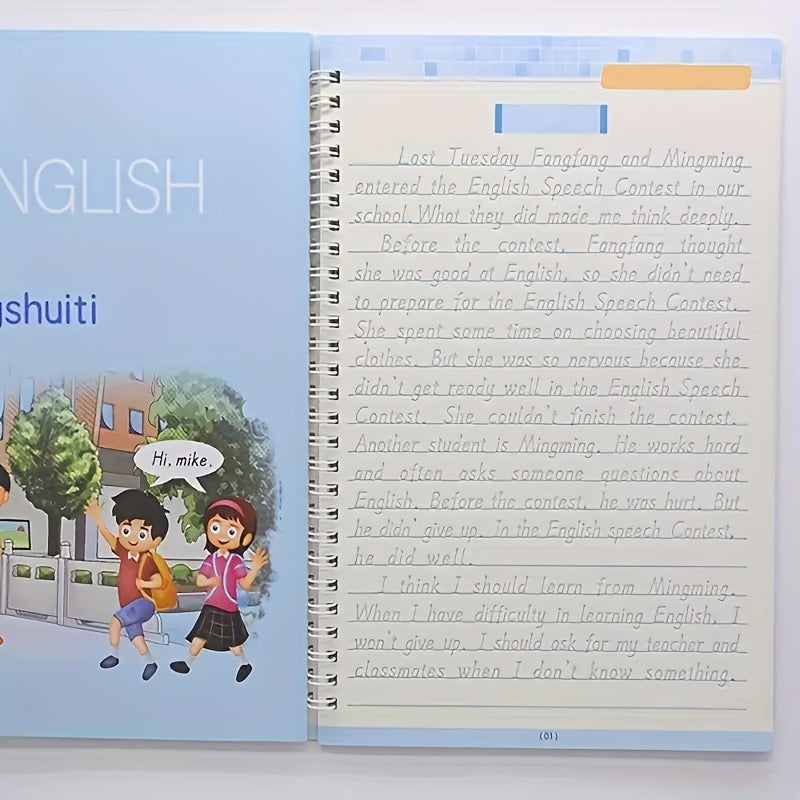 NGLISH
gshuiti
Hi, mike.
Last Tuesday Fangfang and Mingming
entered the English Speech Contest in our
school. What they did made me think deeply.
Before the contest, Fangfang thought
she was good at English, so she didn't need
to prepare for the English Speech Contest.
She spent some time on choosing beautiful
clothes. But she was so nervous because she
didn't get ready well in the English Speech
Contest. She couldn't finish the contest.
Another student is Mingming. He works hard
and often asks someone questions about
English. Before the contest, he was hurt. But
he didn' give up. In the English speech Contest,
he did well.
I think I should learn from Mingming.
When I have difficulty in learning English, I
won't give up. I should ask for my teacher and
classmates when I don't know something.
(01)